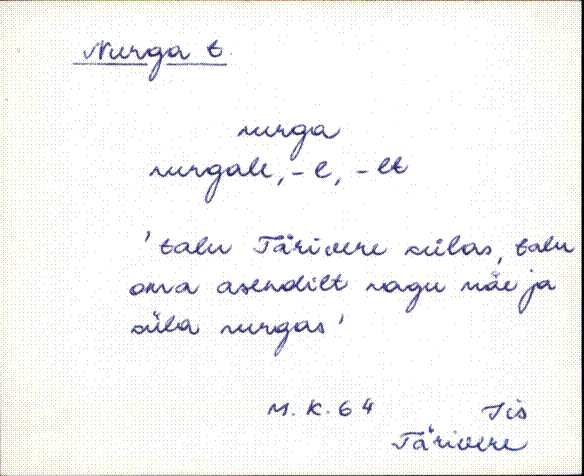 Nurga t.
nurga
nurgale, -e, -lt
'talu Tärivere külas, talu
oma asendilt nagu mäe ja
küla nurgas'
M. K. 64 Iis
Tärivere